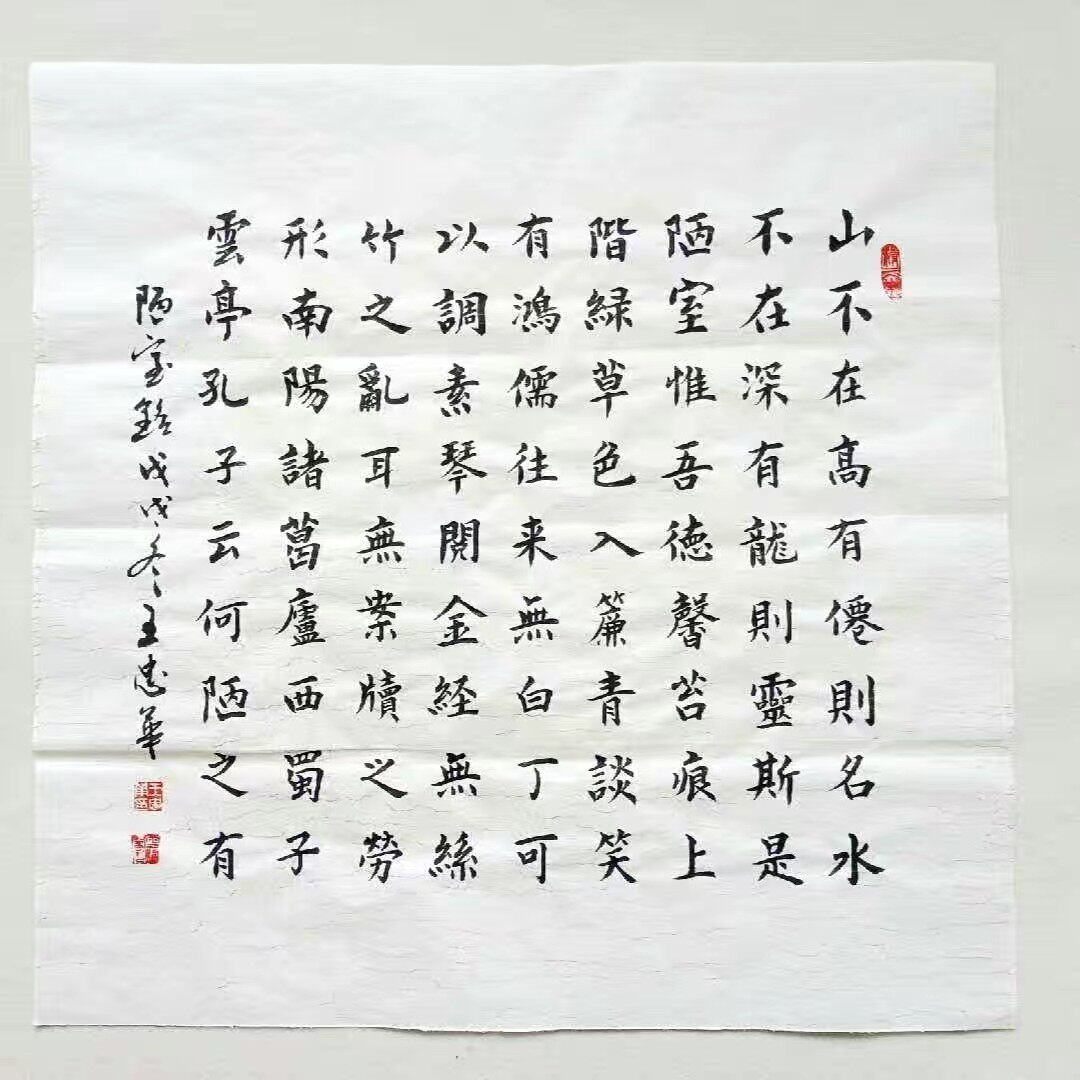 山不在高有僊則名水
不在深有龍則靈斯是
陋室惟吾德馨苔痕上
階緑草色入簾青談笑
有鴻儒往来無白丁可
以調素琴閱金経無絲
竹之亂耳無案牘之勞
形南陽諸葛廬西蜀子
雲亭孔子云何陋之有
陋室銘戊戌冬王忠華